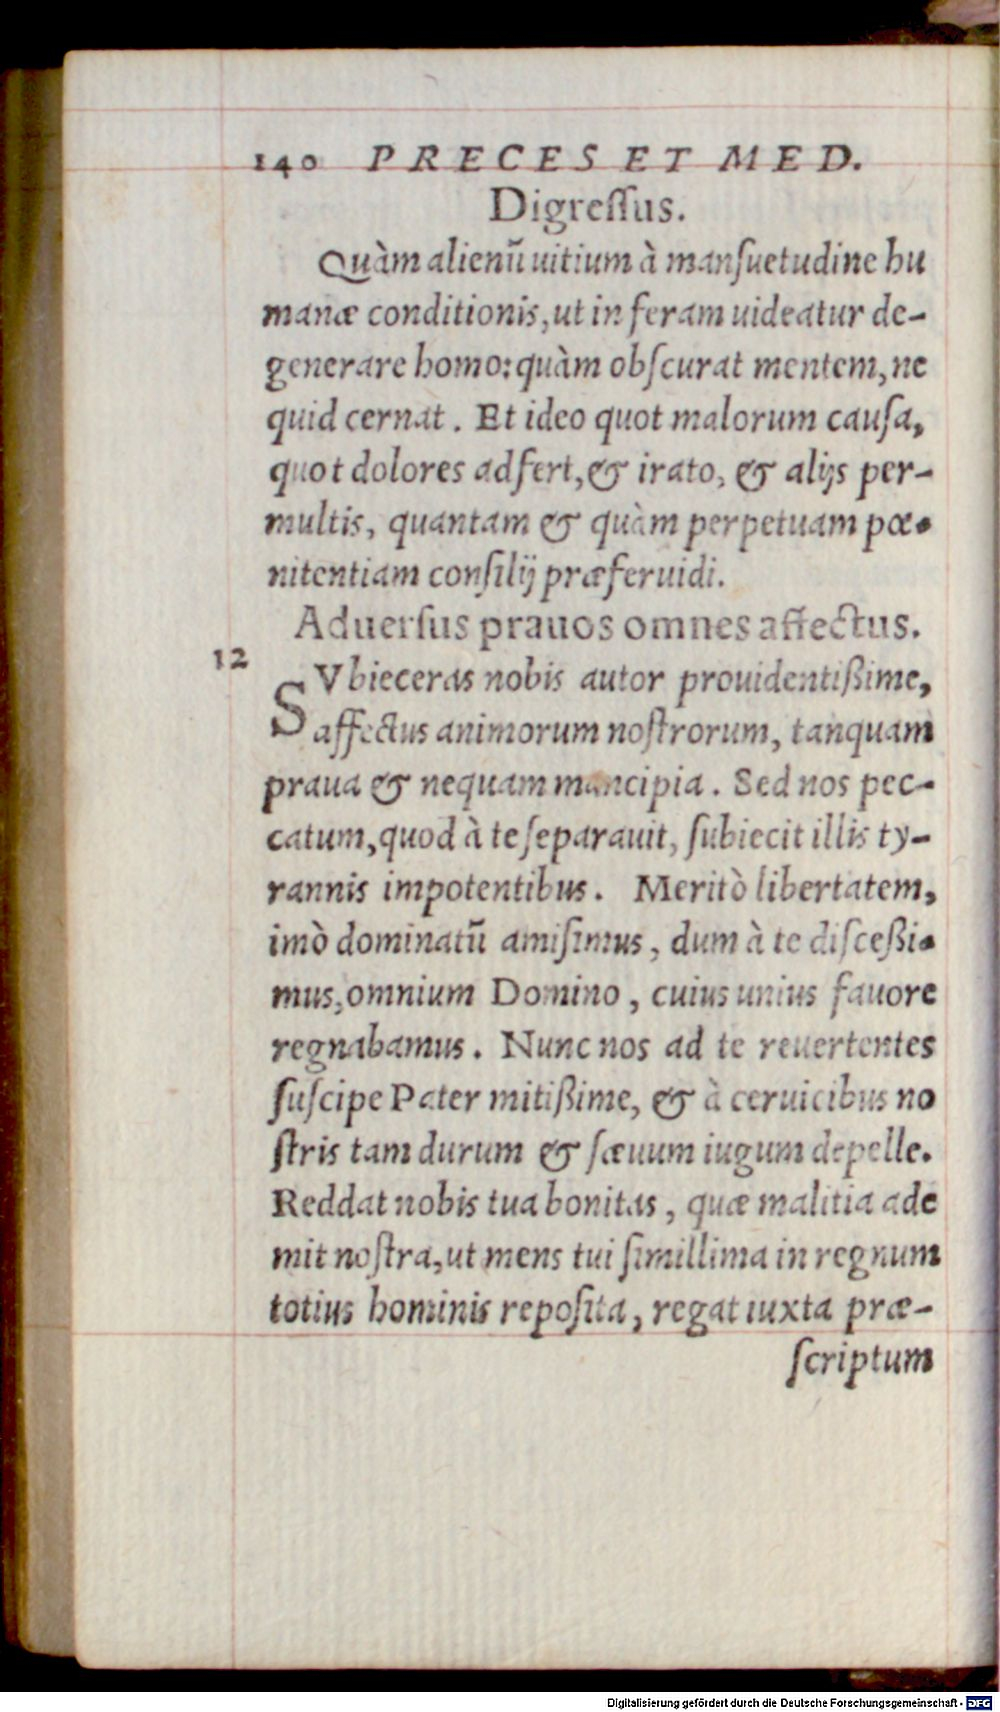 140 PRECES ET MED.
Digreſſus.
Quàm alienũ uitium à manſuetudine hu
manæ conditionis, ut in feram uideatur de-
generare homo: quàm obſcurat mentem, ne
quid cernat. Et ideo quot malorum cauſa,
quot dolores adfert, & irato, & alijs per-
multis, quantam & quàm perpetuam pœ-
nitentiam conſilij præferuidi.
Aduerſus prauos omnes affectus.
12
SVbieceras nobis autor prouidentißime,
affectus animorum noſtrorum, tanquam
praua & nequam mancipia. Sed nos pec-
catum, quod à te ſeparauit, ſubiecit illis ty-
rannis impotentibus. Meritò libertatem,
imò dominatũ amiſimus, dum à te diſceßi-
mus, omnium Domino, cuius unius fauore
regnabamus. Nunc nos ad te reuertentes
ſuſcipe Pater mitißime, & à ceruicibus no
ſtris tam durum & ſæuum iugum depelle.
Reddat nobis tua bonitas, quæ malitia ade
mit noſtra, ut mens tui ſimillima in regnum
totius hominis repoſita, regat iuxta præ-
ſcriptum
Digitalisierung gefördert durch die Deutsche Forschungsgemeinschaft - DFG